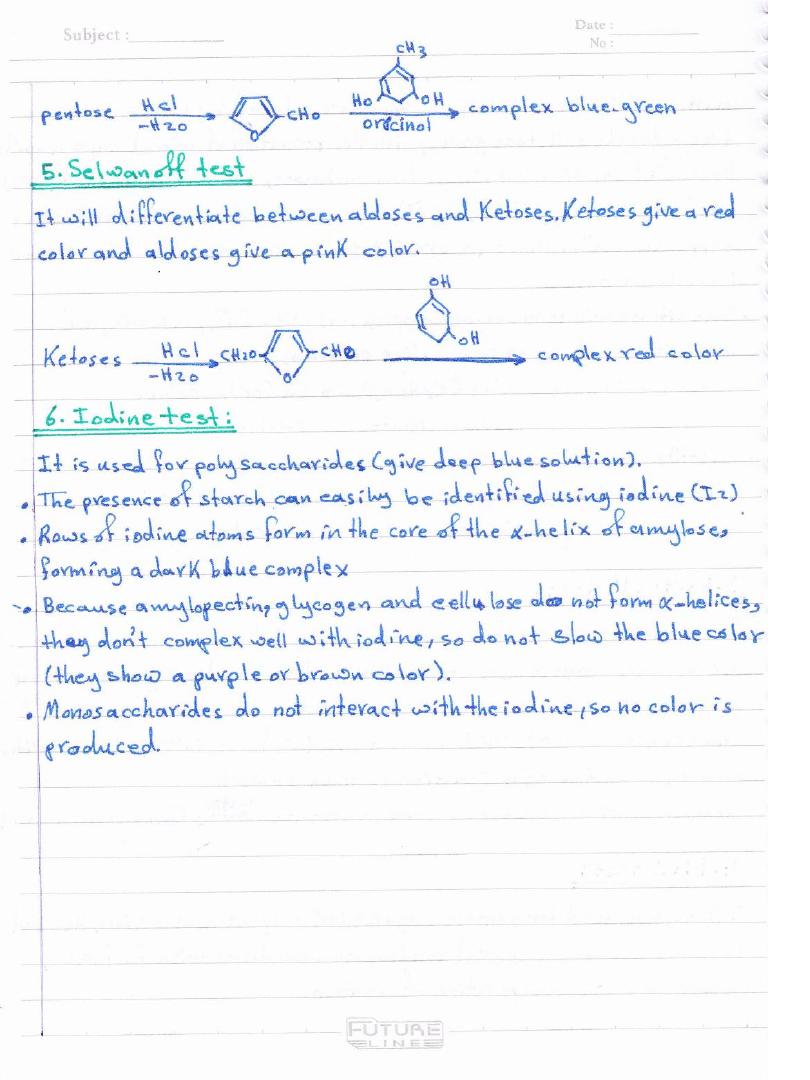 Subject :
Date :
No :
CH3
pentose HCl -H2O O CHO HO OH orcinol complex blue-green
5. Selwanoff test
It will differentiate between aldoses and Ketoses. Ketoses give a red
color and aldoses give a pink color.
OH
Ketoses HCl -H2O CH2O O CHO OH complex red color
6. Iodine test:
It is used for polysaccharides (give deep blue solution).
• The presence of starch can easily be identified using iodine (I2)
• Rows of iodine atoms form in the core of the α-helix of amylose,
forming a dark blue complex
• Because amylopecting, glycogen and cellulose do not form α-helices,
they don't complex well with iodine, so do not slow the blue color
(they show a purple or brown color).
• Monosaccharides do not interact with the iodine, so no color is
produced.
FUTURE
LINE